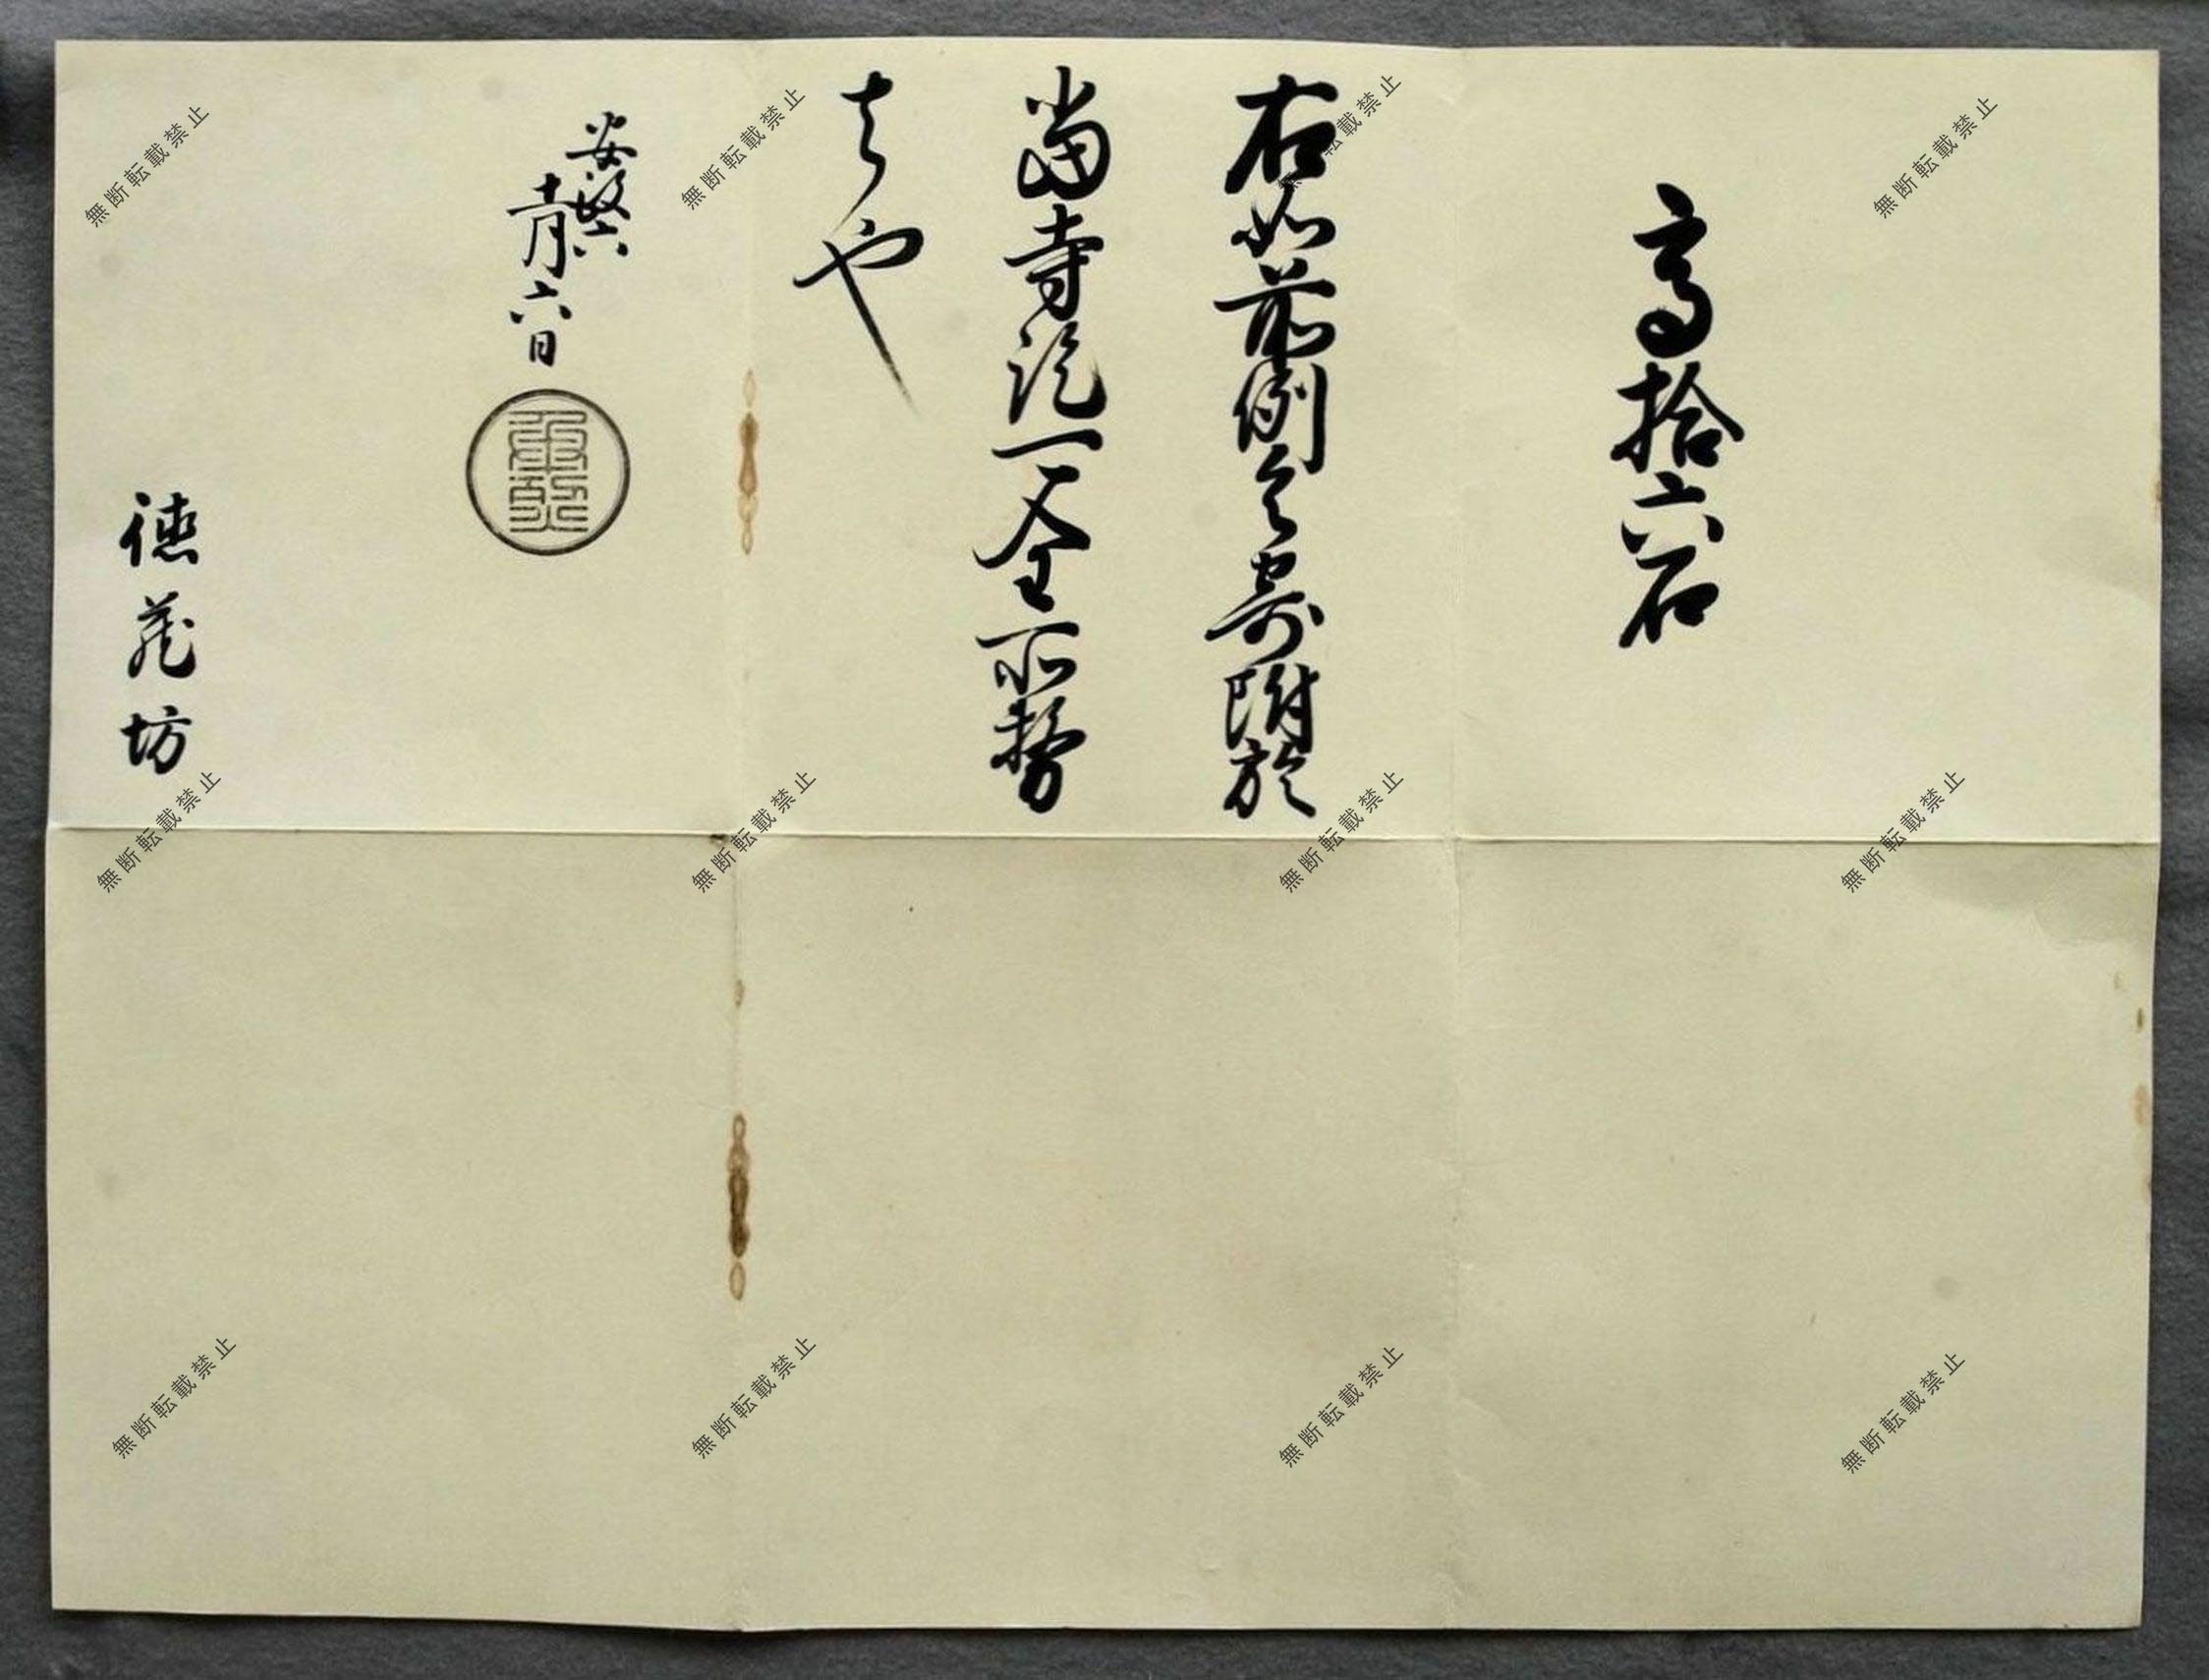 高拾六石
右如前例令寄附於
当寺訖可全所務
者也
安政六
十一月六日
徳蔵坊
無断転載禁止
無断転載禁止
無断転載禁止
無断転載禁止
無断転載禁止
無断転載禁止
無断転載禁止
無断転載禁止
無断転載禁止
無断転載禁止
無断転載禁止
無断転載禁止